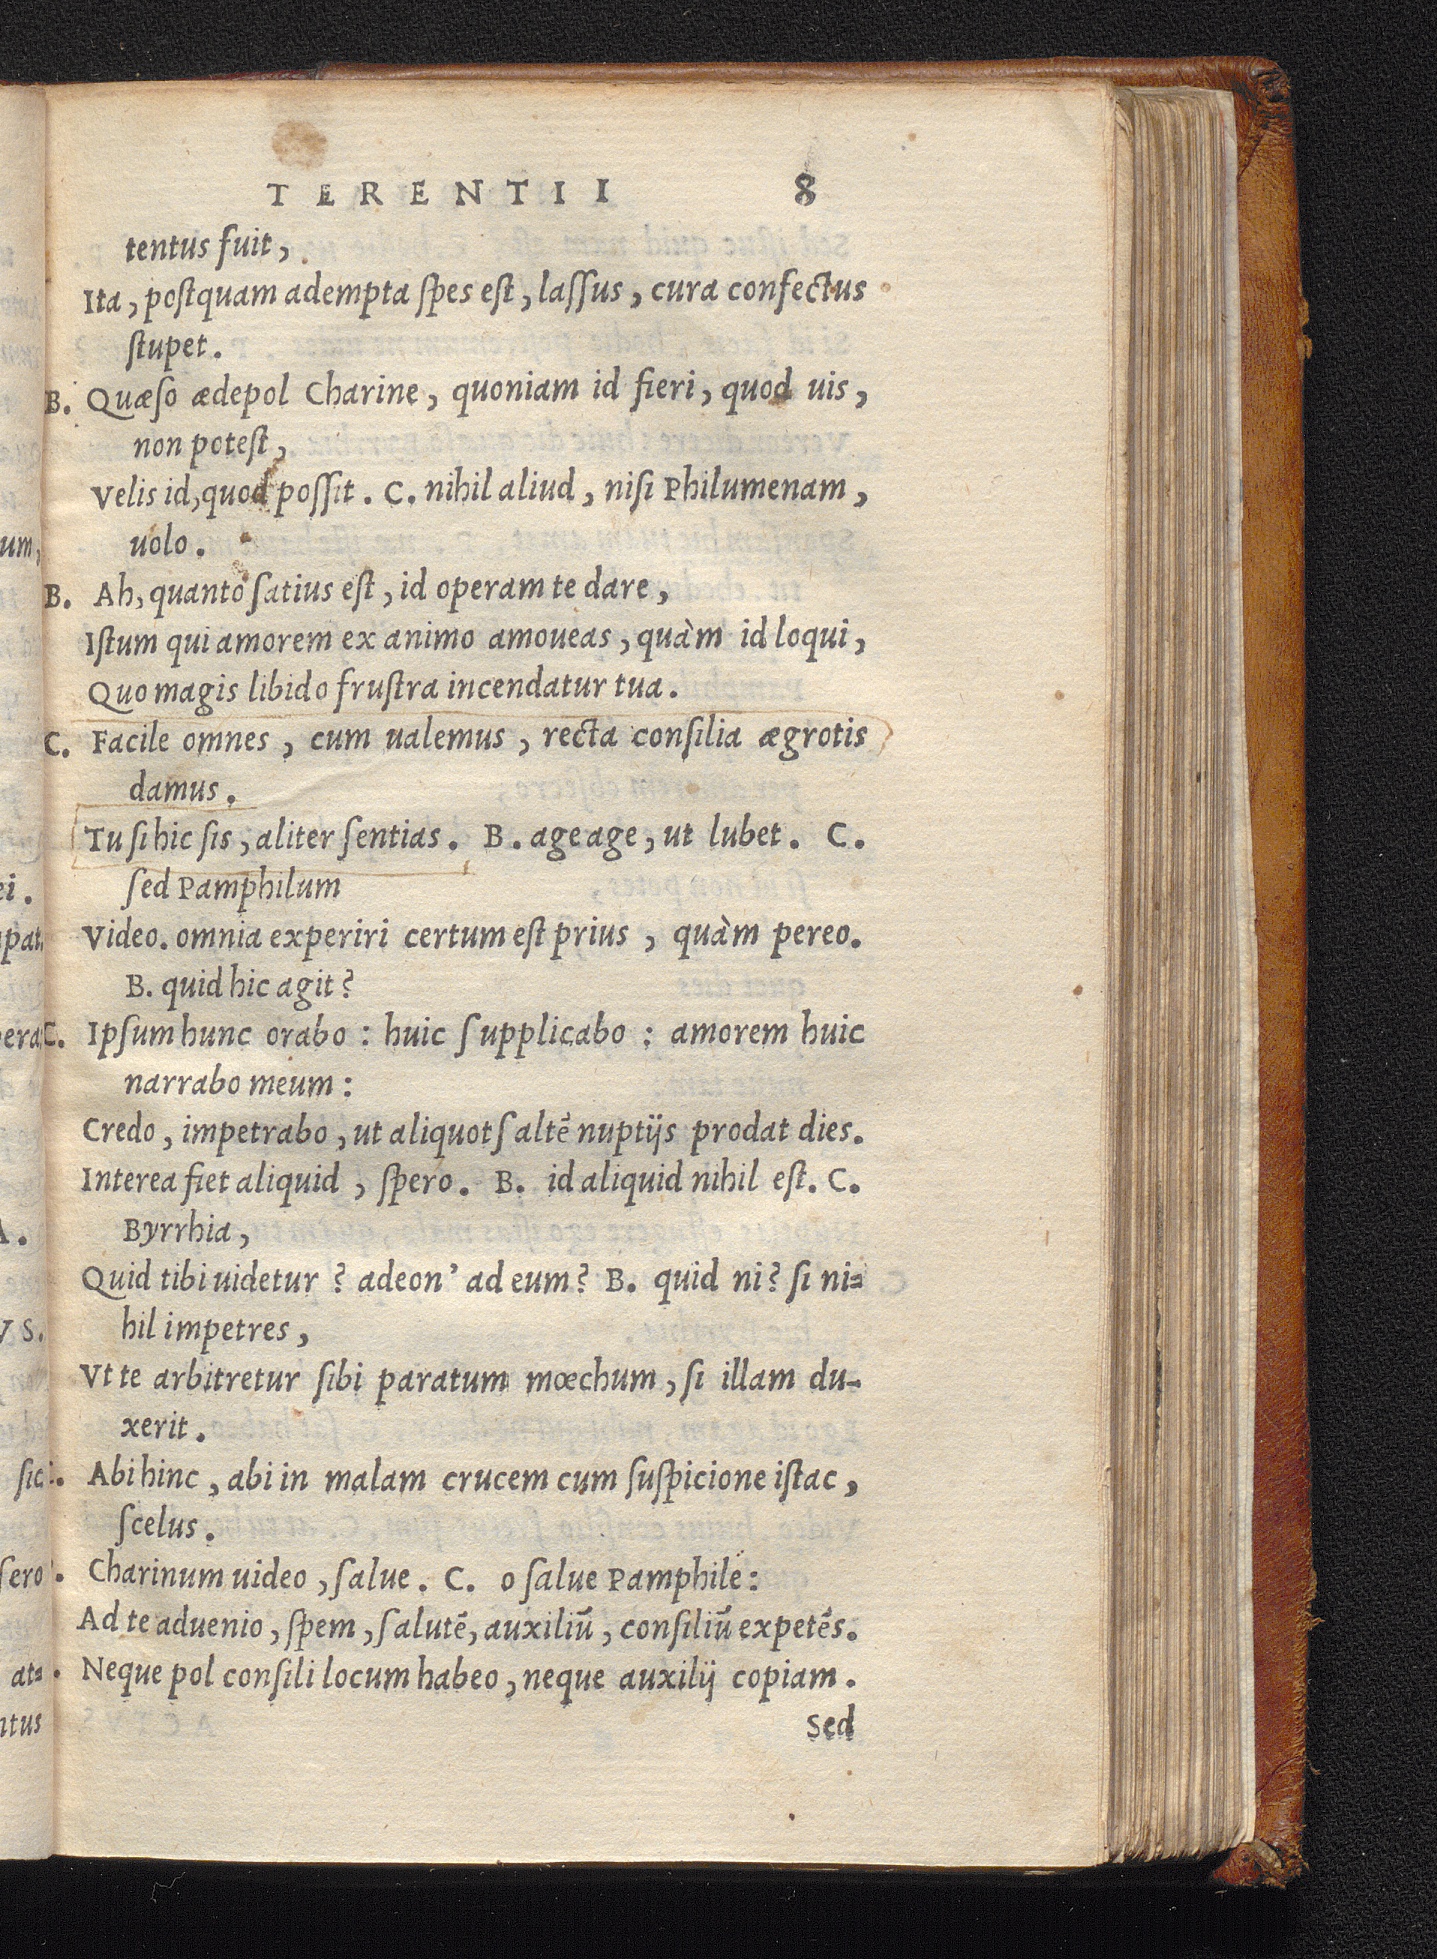 TERENTII 8
tentus fuit,
Ita, postquam adempta spes est, lassus, cura confectus
stupet.
B. Quæso ædepol Charine, quoniam id fieri, quod uis,
non potest,
Velis id, quod possit. C. nihil aliud, nisi Philumenam,
uolo.
B. Ah, quanto satius est, id operam te dare,
Istum qui amorem ex animo amoueas, quàm id loqui,
Quo magis libido frustra incendatur tua.
C. Facile omnes, cum ualemus, recta consilia ægrotis
damus.
Tu si hic sis, aliter sentias. B. age age, ut lubet. C.
sed Pamphilum
Video. omnia experiri certum est prius, quàm pereo.
B. quid hic agit?
C. Ipsum hunc orabo: huic supplicabo: amorem huic
narrabo meum:
Credo, impetrabo, ut aliquot saltē nuptijs prodat dies.
Interea fiet aliquid, spero. B. id aliquid nihil est. C.
Byrrhia,
Quid tibi uidetur? adeon' ad eum? B. quid ni? si ni=
hil impetres,
Vt te arbitretur sibi paratum mœchum, si illam du-
xerit.
C. Abi hinc, abi in malam crucem cum suspicione istac,
scelus.
Charinum uideo, salue. C. o salue Pamphile:
Ad te aduenio, spem, salutē, auxiliū, consiliū expetēs.
Neque pol consili locum habeo, neque auxilij copiam.
Sed